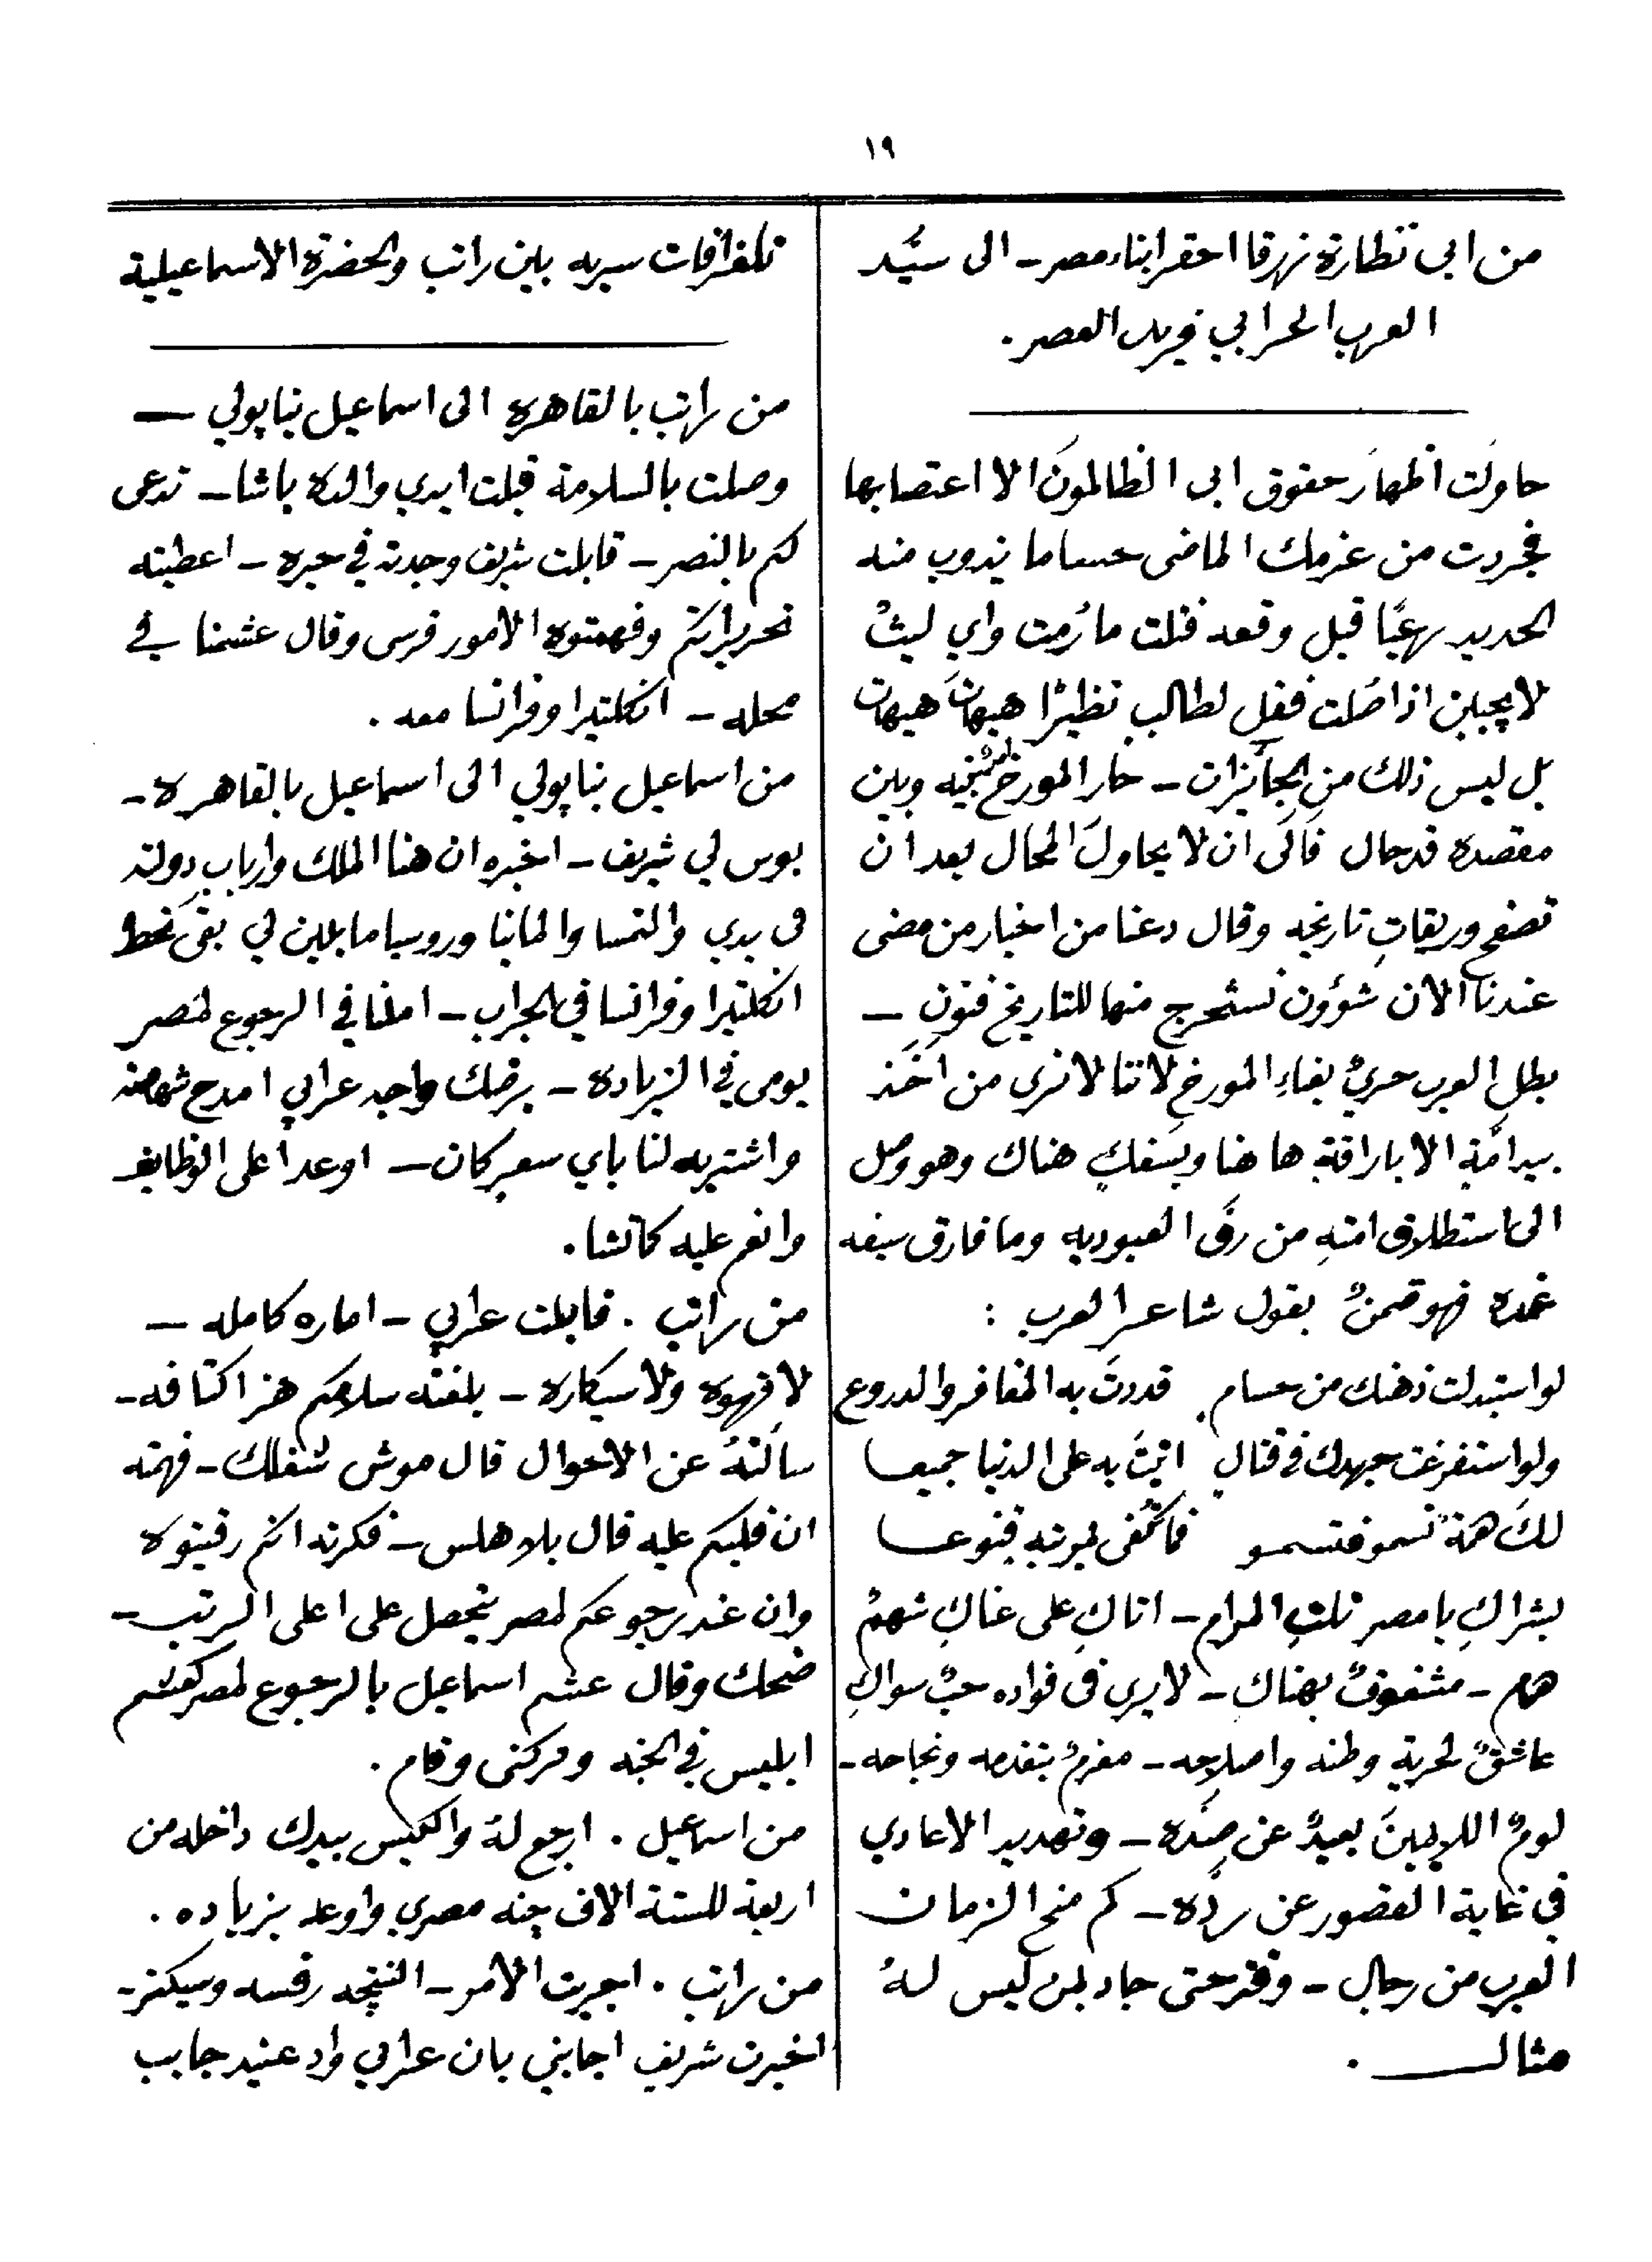 ١٩
من ابي نظارة زرقا احقر ابناء مصر - الى سيّد
العرب الحرابي فريد العصر .
حاولت اظهارَ حقوق ابى الظالمونَ الا اعتصابها
فجردت من عزمك الماضى حساما يذوب منه
الحديد رعبًا قبل وقعه فنلت ما رُمت واي ليثٌ
لا يجبن اذا صَلت فقل لطالب نظيرًا هيهاتَ هيهات
بل ليس ذلك من الجائزات - حار المورخ وبين
مقصده قد حال فالى ان لا يحاولَ المحال بعد ان
تصفح وريقاتِ تاريخه وقال دعنا من اخبار من مضى
عندنا الان شؤون نستخرج منها للتاريخ فنونٍ -
بطل العرب حريٌ بغاءِ المورخ لاننا لا نرى من اخَذ
بيد امّةٍ الا باراقةٍ هاهنا وبسَفكٍ هناك وهو وصل
الى استطلاق امتهِ من رقَ العبوديه وما فارق سيفه
غمده فهو قمنٌ بقول شاعر العرب :
لو استبدلت ذهنك من حسام قددتَ به المغافر والدروع
ولو استفرغت جهدك فى قتال اتيتَ به على الدنيا جميعا
لكَ همّةٌ تسمو فتسمو فما تُلفى لمرتبهٍ قنوعا
بشراكِ يا مصر نلتِ المرام - اتاكِ على غاكِ شهمٌ
همام - مشغوفٌ بهناكِ - لا يرى فى فواده حبٌ سواكِ
عاشقٌ لحرية وطنه واصلاحه - مغرمٌ بتقدمه ونجاحه -
لومٌ اللايمينَ بعيدٌ عن صدّه - وتهديد الاعادي
في غاية القصور عن ردّه - كم منح الزمان
العرب من رجال - وفخر حتى جاد بمن ليس لهُ
مثال .
تلغرافات سريه بين راتب والحضرة الاسماعيلية
من راتب بالقاهره الى اسماعيل بناپولي -
وصلت بالسلامة قبلت ايدي والده باشا - تدعى
لكم بالنصر - قابلت شريف وجدته في حيره - اعطيته
تحريراتكم وفهمتوه الامور فرس وقال عشمنا في
محله - انكلتيرا وفرانسا معه .
من اسماعيل بناپولي الى اسماعيل بالقاهره -
بوس لي شريف - اخبره ان هنا الملك وارباب دولته
فى يدي والنمسا والمانيا وروسيا مايلين لي بقى نحط
انكلتيرا وفرانسا في الجراب - املنا في الرجوع لمصر
يومى في الزياده - برضك واجه عرابي امدح شهامته
واشتريه لنا باي سعر كان - اوعدا على الوظايف
وانعم عليه كمانشا .
من راتب . قابلت عرابي - اماره كامله -
لا قهوه ولا سيكاره - بلغته سلامكم هز اكتافه -
سالتهُ عن الاحوال قال موش شغلك - فهمته
ان قلبكم عليه قال بلا هلس - فكرته انكم رقيتوه
وان عند رجوعكم لمصر يحصل على اعلى الرتب -
ضحك وقال عشم اسماعيل بالرجوع لمصر كعشم
ابليس في الجنه وتركنى وقام .
من اسماعيل . ارجع لهُ والكيس بيدك داخله من
اربعة للستة الاف جنه مصري واوعد بزياده .
من راتب . اجريت الامر - النتيجه رفسه وسيكتر -
اخبرت شريف اجابني بان عرابي واد عنيد جايب